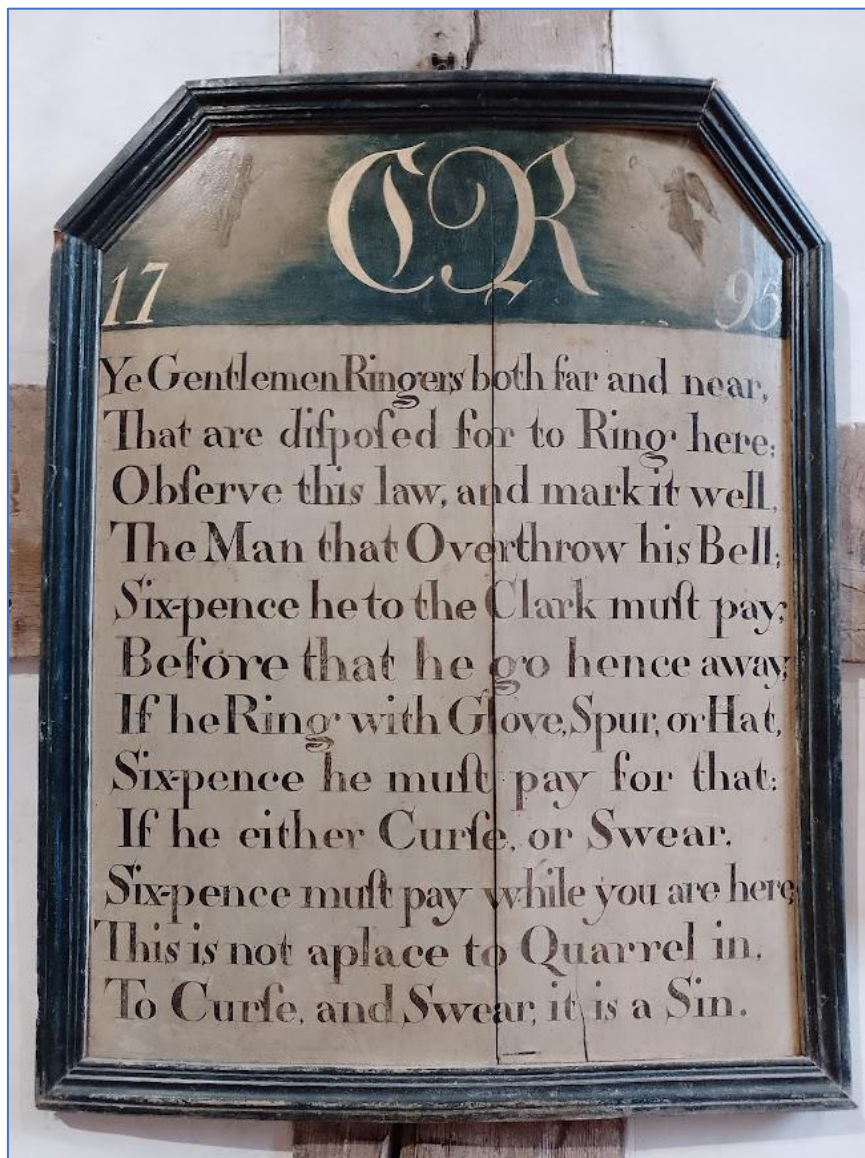 CR
17 95
Ye Gentlemen Ringers both far and near,
That are diſpoſed for to Ring here;
Obſerve this law, and mark it well,
The Man that Overthrow his Bell;
Six-pence he to the Clark muſt pay;
Before that he go hence away;
If he Ring with Glove, Spur, or Hat,
Six-pence he muſt pay for that:
If he either Curſe, or Swear,
Six-pence muſt pay while you are here;
This is not aplace to Quarrel in,
To Curſe, and Swear, it is a Sin.